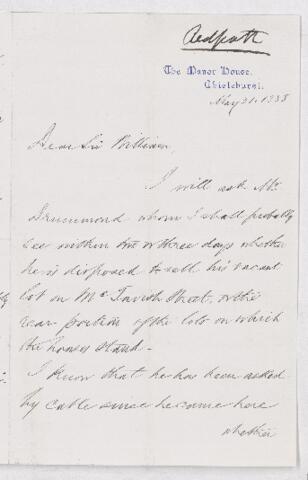 Redpath
The Manor House.
Chislehurst.
May 31. 1888
Dear Sir William,
I will ask Mr.
Drummond whom I shall probably
see within two or three days whether
he is disposed to sell his vacant
lot on McTavish Street, or the
rear portion of the lots on which
the houses stand -
I know that he has been asked
by cable since he came here
whether